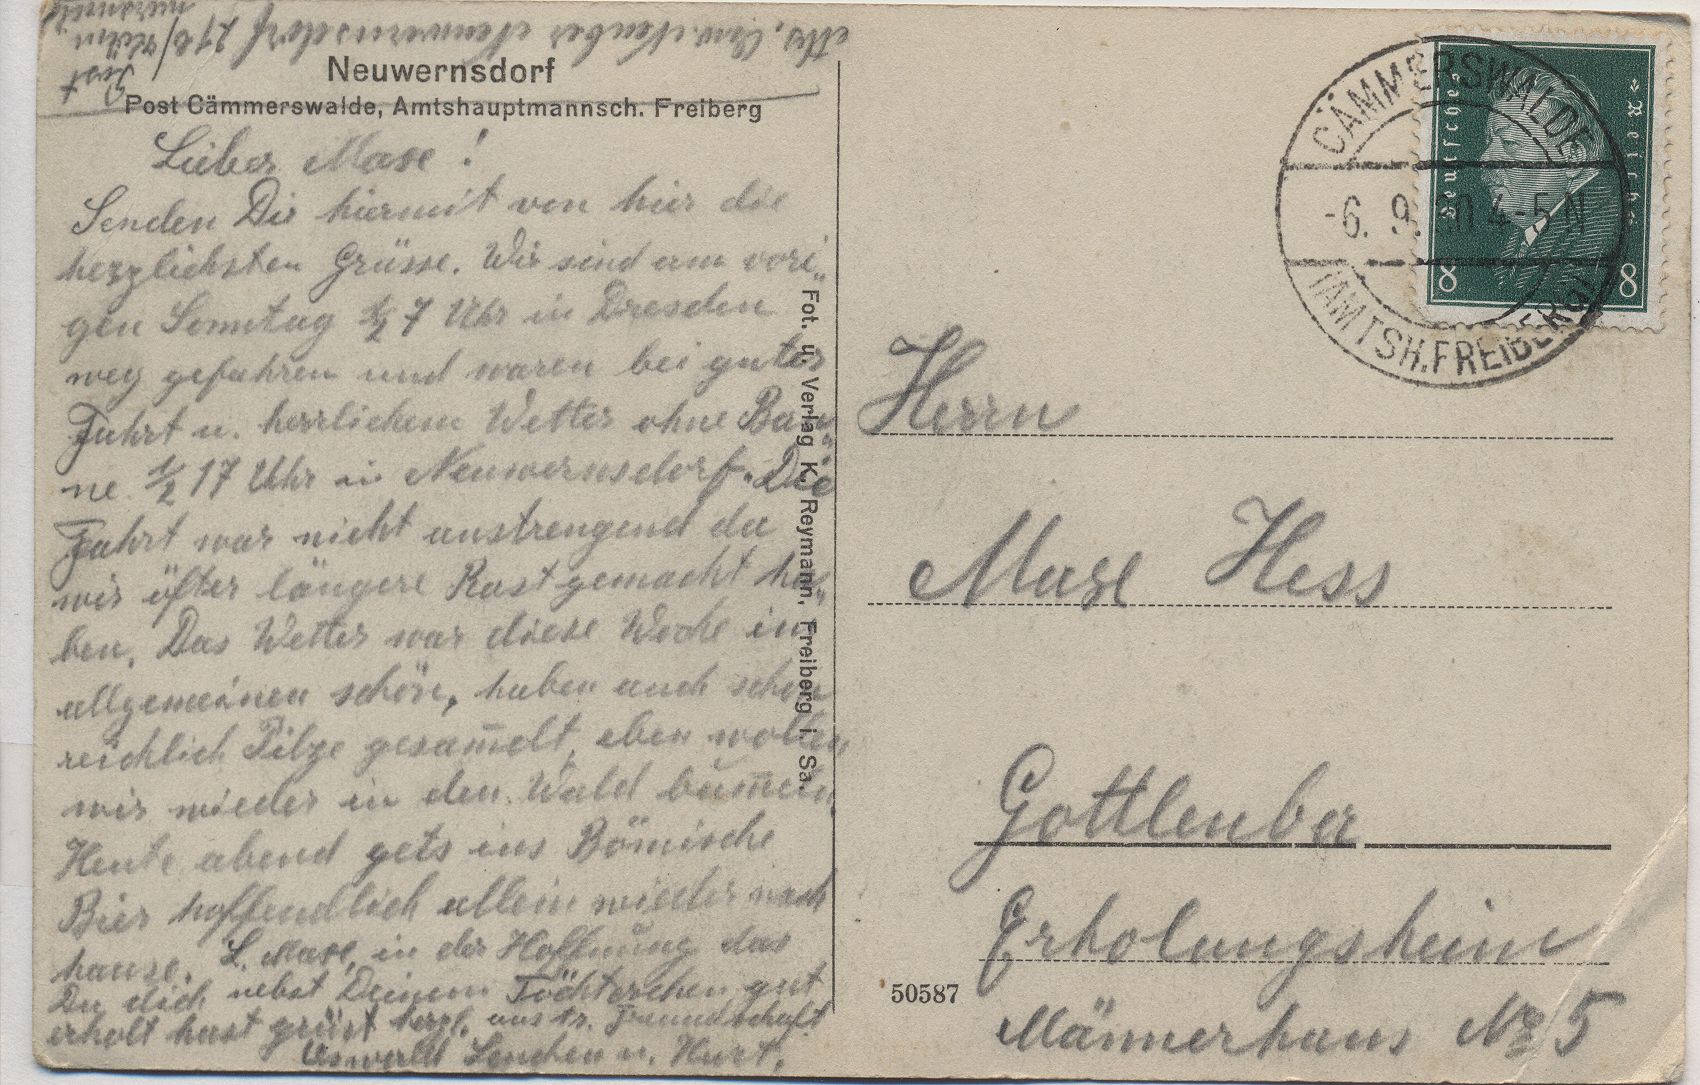 Neuwernsdorf
Post Cämmerswalde, Amtshauptmannsch. Freiberg
Lieber Maxe!
Senden Dir hiermit von hier die
herzlichsten Grüsse. Wir sind am vori-
gen Sonntag ½ 7 Uhr in Dresden
weg gefahren und waren bei guter
Fahrt u. herrlichem Wetter ohne Pan-
ne ½ 17 Uhr in Neuwernsdorf. Die
Fahrt war nicht anstrengend da
wir öfter längere Rast gemacht ha-
ben. Das Wetter war diese Woche im
allgemeinen schön, haben auch schon
reichlich Pilze gesam̅elt, eben wollen
wir wieder in den Wald bum̅eln.
Heute abend gets ins Bömische
Bier hoffendlich allein wieder nach
hause. L. Maxe, in der Hoffnung das
Du dich nebst Deinem Töchterchen gut
erholt hast grüst herzl. aus tr. Freundschaft
Oswald Lenchen u. Kurt.
Neuwernsdorf 27 b
Post
Fot. u. Verlag K. Reymann, Freiberg i. Sa.
CÄMMERSWALDE
-6. 9. 30 4-5 N
(AMTSH. FREIBERG)
Deutsches Reich
8 8
Herrn
Maxe Hess
Gottleuba
Erholungsheim
Männerhaus Nr 5
50587